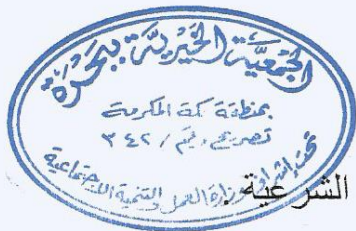 الجمعية الخيرية ببحرة
بمنطقة مكة المكرمة
تصريح رقم / ٣٤٢
تحت إشراف وزارة العمل والتنمية الاجتماعية
الشرعية .